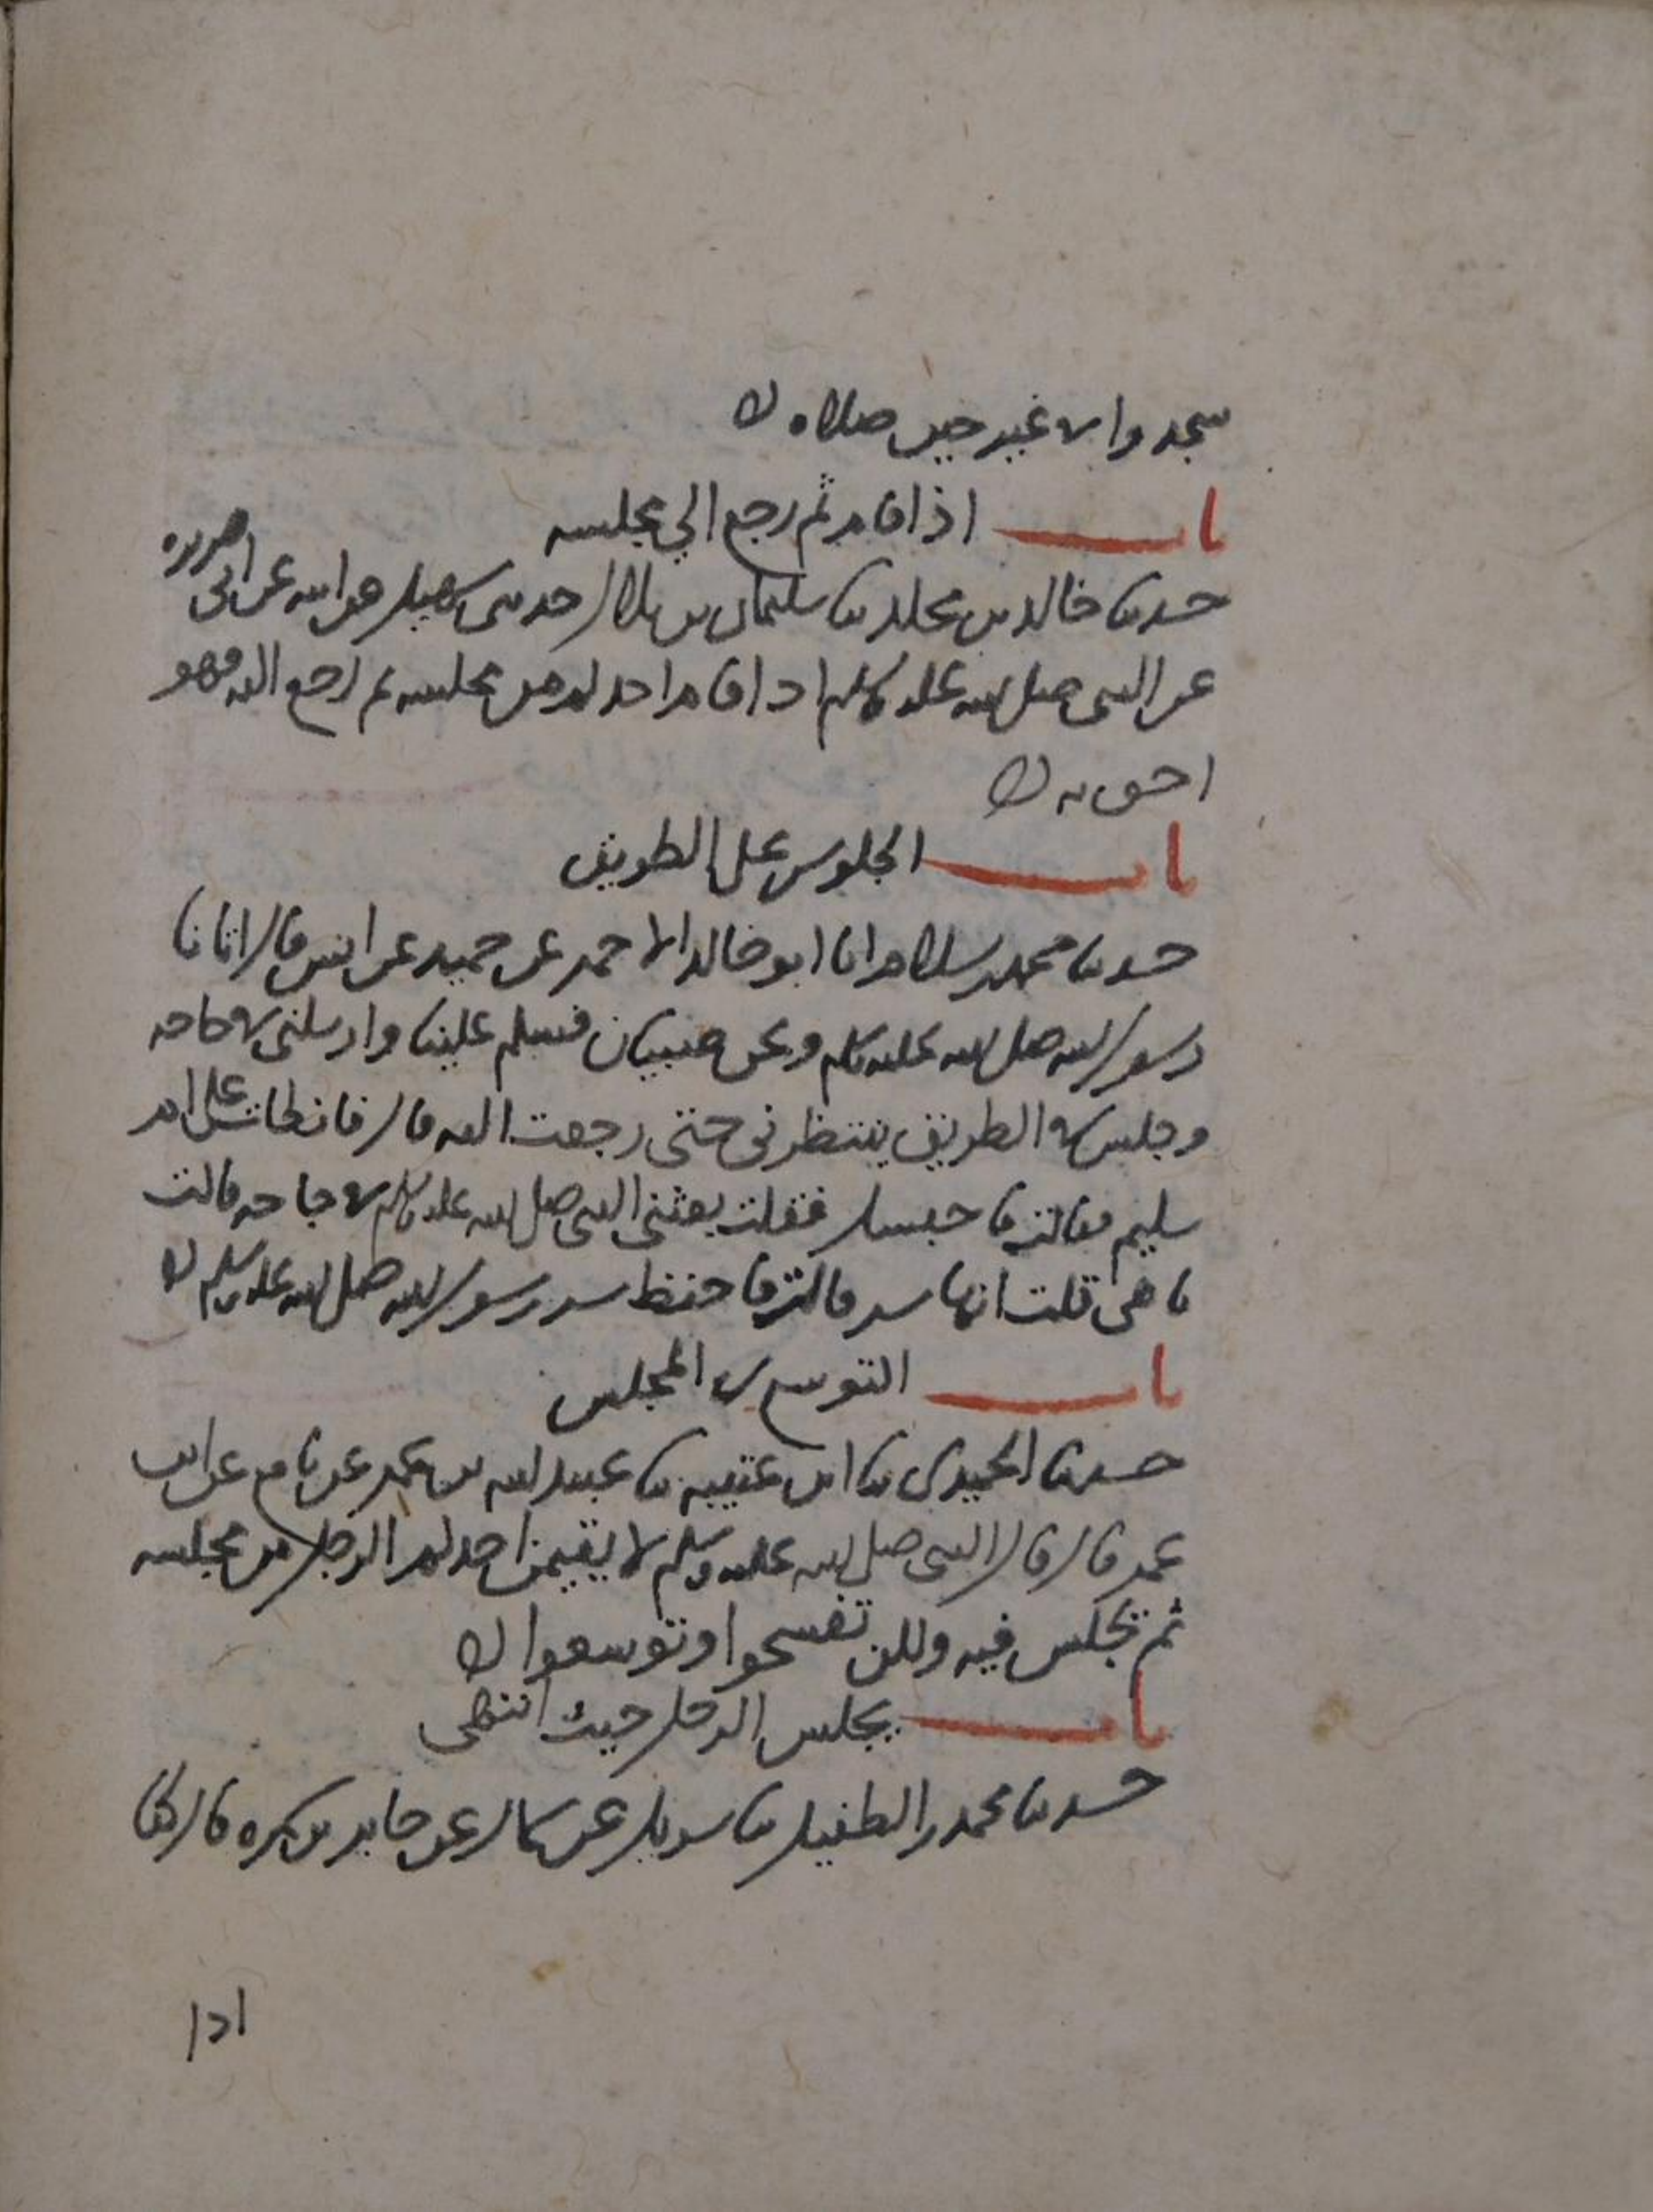 سجدوا في غير حين صلاة ه
باب اذا قام ثم رجع الى مجلسه
حدثنا خالد بن مخلد ثنا سليمان بن بلال حدثني سهيل عن ابيه عن ابي هريره
عن النبي صلى الله عليه وسلم اذا قام احدكم من مجلسه ثم رجع اليه فهو
احق به ه
باب الجلوس على الطريق
حدثنا محمد بن سلام انا ابو خالد الاحمر عن حميد عن انس قال اتانا
رسول الله صلى الله عليه وسلم ونحن صبيان فسلم علينا وارسلني في حاجه
وجلس في الطريق ينتظرني حتى رجعت اليه قال فابطات على ام
سليم فقالت ما حبسك فقلت بعثني النبي صلى الله عليه وسلم في حاجه قالت
ما هي قلت انها سر قالت فاحفظ سر رسول الله صلى الله عليه وسلم ه
باب التوسع في المجلس
حدثنا الحميدي ثنا ابن عيينه ثنا عبيد الله بن عمر عن نافع عن ابن
عمر قال قال النبي صلى الله عليه وسلم لا يقيمن احدكم الرجل من مجلسه
ثم يجلس فيه ولكن تفسحوا وتوسعوا ه
باب يجلس الرجل حيث انتهى
حدثنا محمد بن الطفيل ثنا شريك عن سماك عن جابر بن سمره قال كنا
اذا